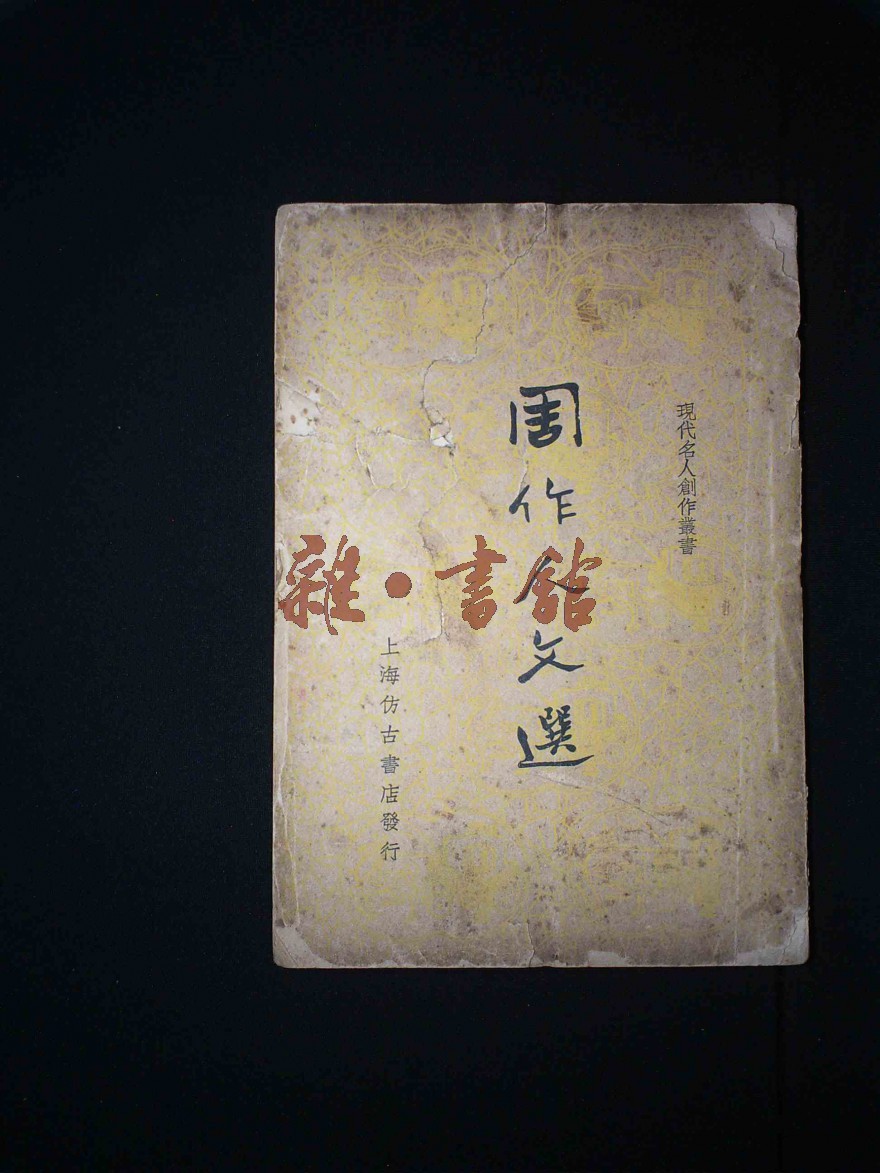 現代名人創作叢書
周作人文選
上海仿古書店發行
雜·書館